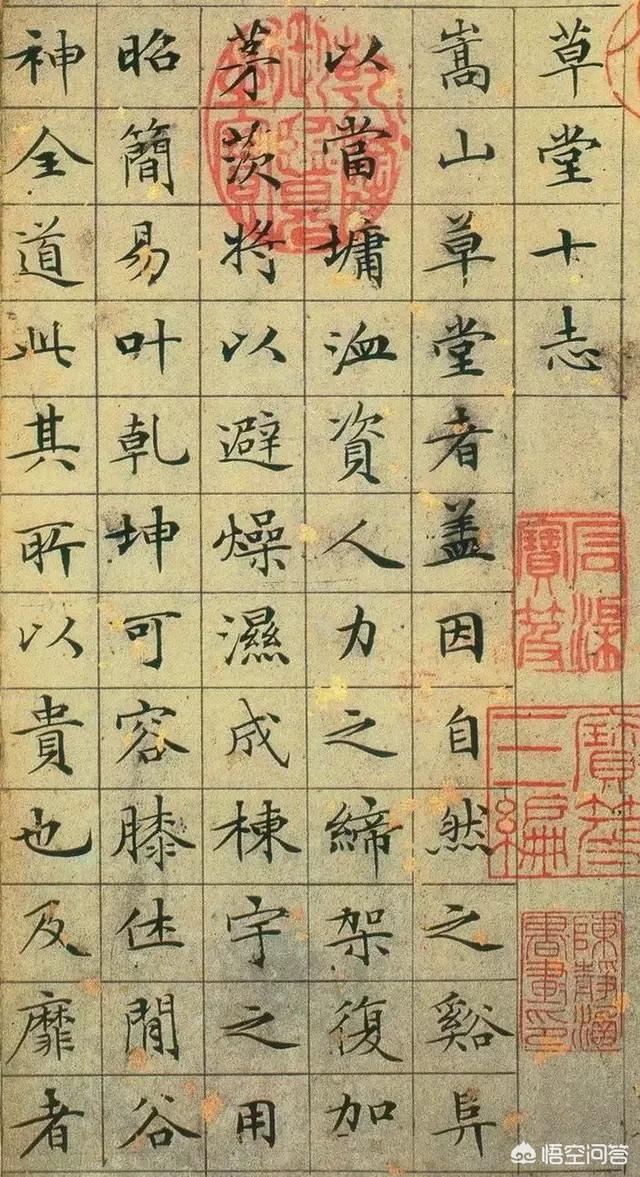 草堂十志
嵩山草堂者盖因自然之谿阜
以當墉洫資人力之締架復加
茅茨将以避燥濕成棟宇之用
昭簡易叶乾坤可容膝休閒谷
神全道此其所以貴也及靡者
乾隆御覽之寶
石渠寶笈
寶笈三編
悟空问答